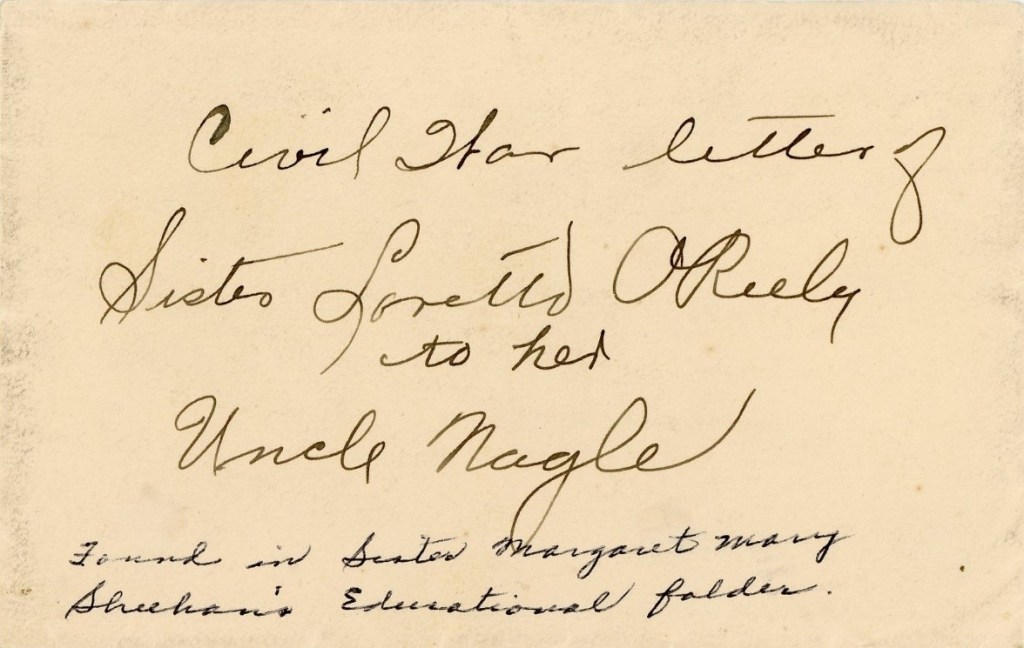 Civil War letter of
Sister Loretto O'Reely
to her
Uncle Nagle
Found in Sister Margaret Mary
Sheehan's Educational folder.